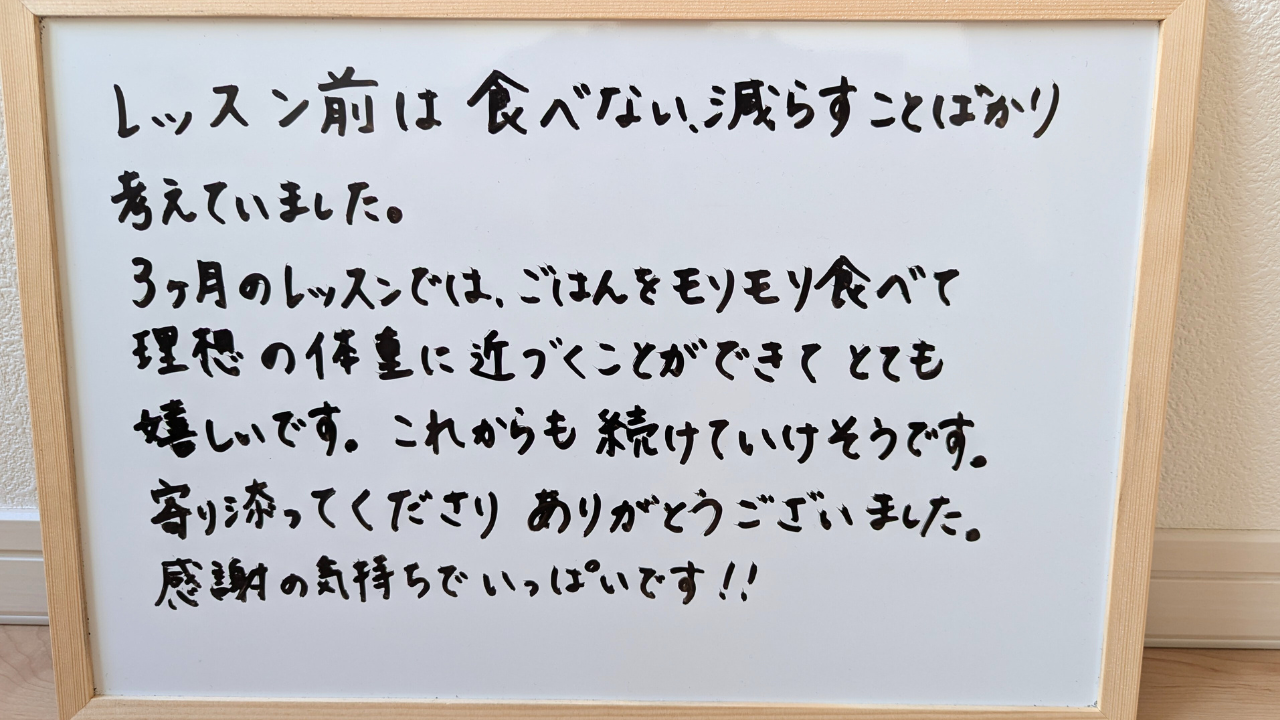 レッスン前は 食べない、減らすことばかり
考えていました。
3ヶ月のレッスンでは、ごはんをモリモリ食べて
理想の体重に近づくことができて とても
嬉しいです。これからも 続けていけそうです。
寄り添ってくださり ありがとうございました。
感謝の気持ちでいっぱいです!!